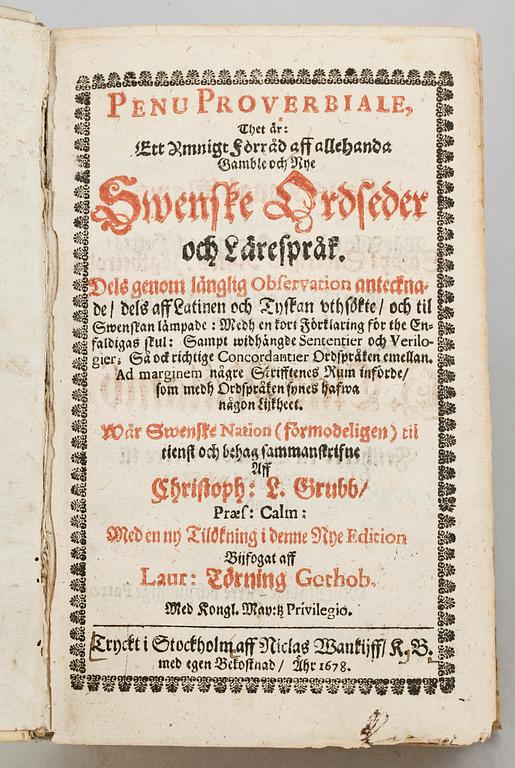 PENU PROVERBIALE,
Thet är:
Ett Ymnigt Förråd aff allehanda
Gamble och Nye
Swenske Ordseder
och Lärespråk.
Dels genom långlig Observation anteckna-
de/ dels aff Latinen och Tyskan vthsökte/ och til
Swenskan lämpade: Medh en kort Förklaring för the En-
faldigas skul: Sampt widhängde Sententier och Verilo-
gier; Så ock richtige Concordantier Ordspråken emellan.
Ad marginem någre Skrifftenes Rum införde/
som medh Ordspråken synes hafwa
någon lijkheet.
Wår Swenske Nation (förmodeligen) til
tienst och behag sammanskrifne
Aff
Christoph: L. Grubb/
Præs: Calm:
Med en ny Tilökning i denne Nye Edition
Bijfogat aff
Laur: Törning Gothob.
Med Kongl. May:tz Privilegio.
Tryckt i Stockholm aff Niclas Wankijff/ K. B.
med egen Bekostnad/ Åhr 1678.